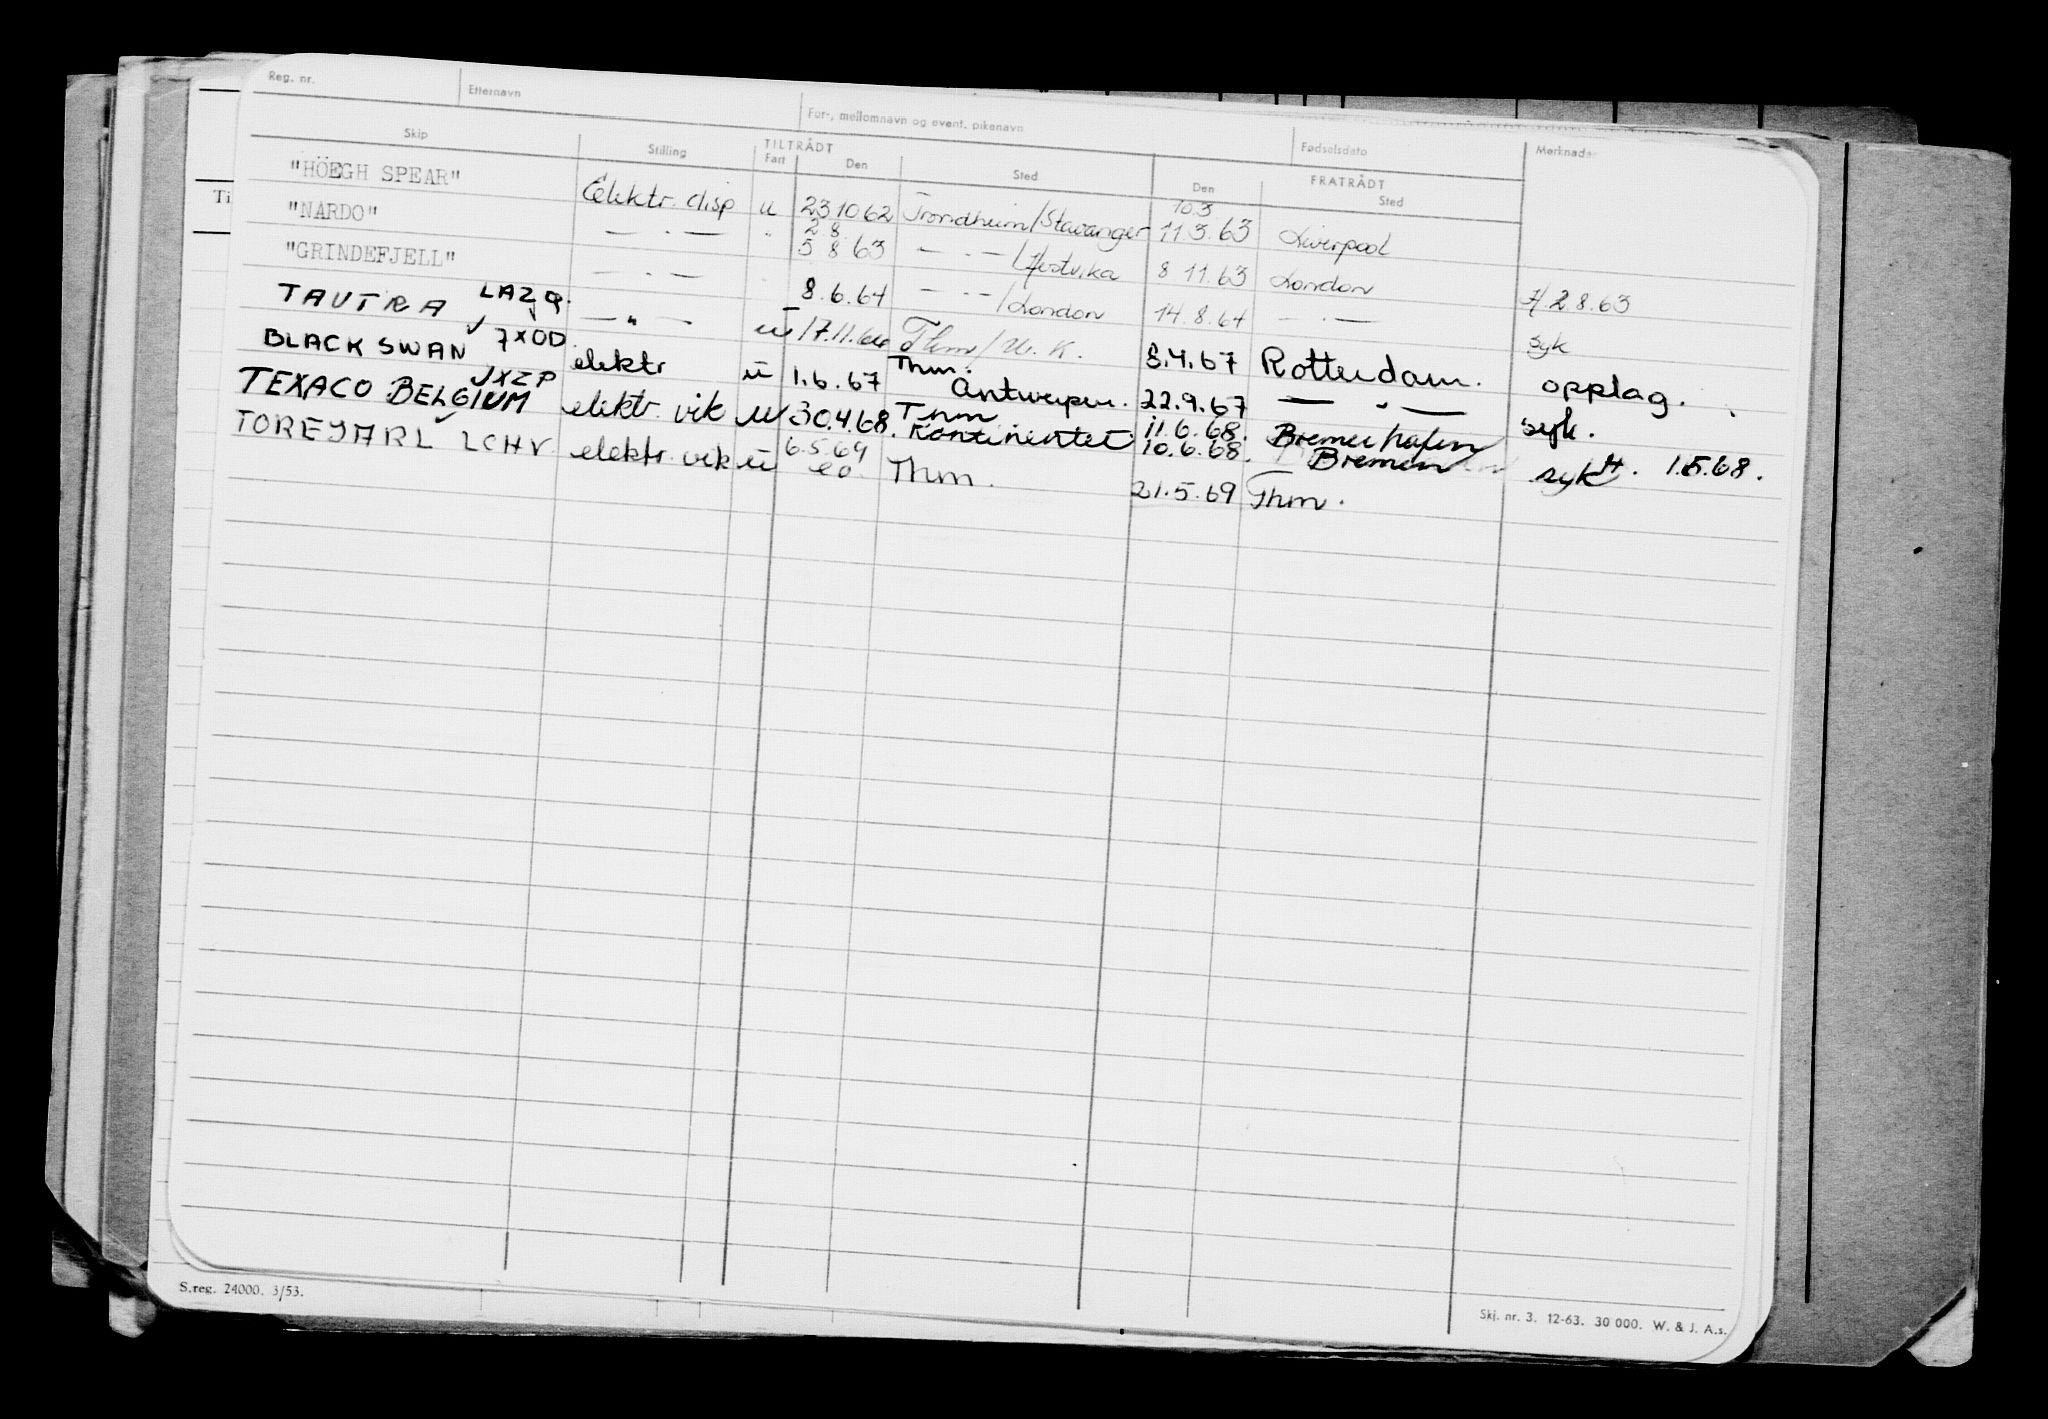 Reg. nr. Etternavn For-, mellomnavn og event. pikenavn Fødselsdato Merknader
Skip Stilling TILTRÅDT FRATRÅDT
Fart Den Sted Den Sted
Ti
"HÖEGH SPEAR" Elektr. disp u 23 10 62 Trondheim/Stavanger 10.3 11.3.63 Liverpool
"NARDO" — . — " 2 8 5 8 63 — . — / Hestvika 8 11.63 London H 2.8.63
"GRINDEFJELL" — . — 8.6.64 — . — /London 14.8.64 — . — syk
TAUTRA LAZQ. — " — u 17.11.66 Thm/U.K. 8.4.67 Rotterdam. opplag.
BLACK SWAN ✓ 7XOD. elektr u 1.6.67 Thm. Antwerpen. 22.9.67 — " — syk.
TEXACO BELGIUM JXZP elektr. vik u 30.4.68. Thm Kontinentet 11.6.68. 10.6.68. Bremerhafen Bremen sykH. 1.5.68.
TOREJARL LCHV. elektr. vik u 6.5.69 eo. Thm. 21.5.69 Thm.
S.reg. 24000. 3/53.
Skj. nr. 3. 12-63. 30 000. W. & J. A.s.